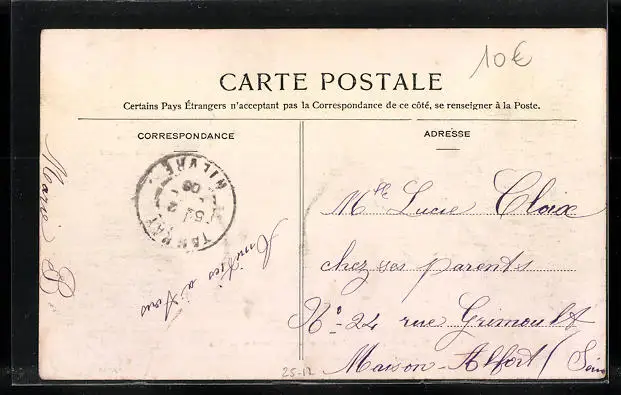 10€
CARTE POSTALE
Certains Pays Étrangers n'acceptant pas la Correspondance de ce côté, se renseigner à la Poste.
CORRESPONDANCE
ADRESSE
Marie B
TANNAY
NIÈVRE
09
Amitiés à tous
Mlle Lucie Cloix
chez ses parents
No 24 rue Grimoult
Maison-Alfort (Seine
25-12